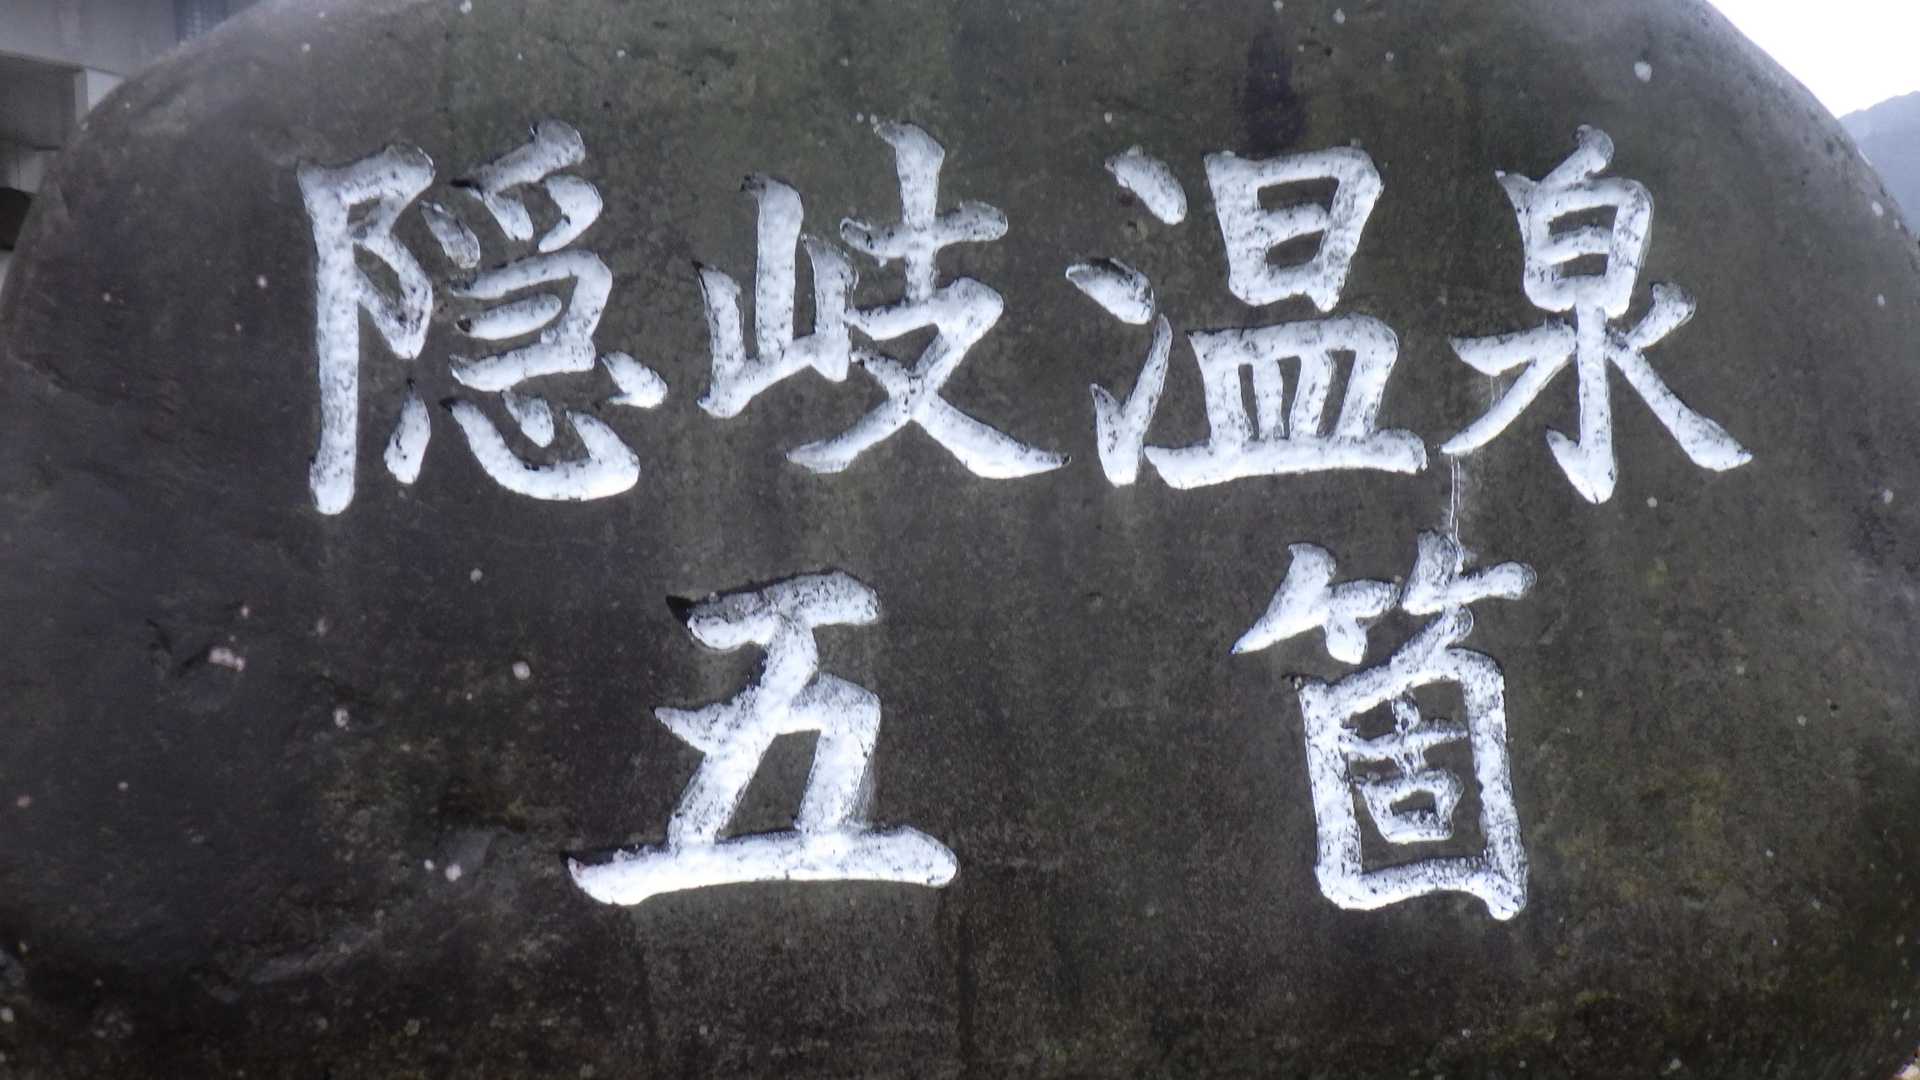 隠岐温泉
五箇